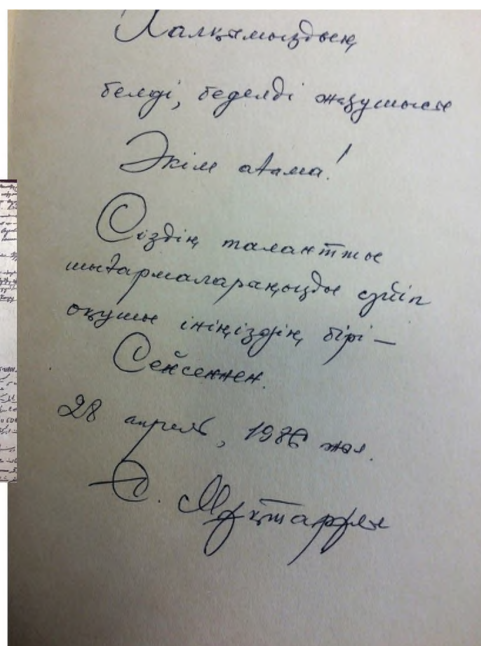 Халқымыздың
белді, беделді жазушысы
Әкім атама!
Сіздің талантты
шығармаларыңызды сүйіп
оқушы ініңіздің бірі –
Сейсеннен.
28 апрель, 1986 жыл.
С. Мұхтарұлы